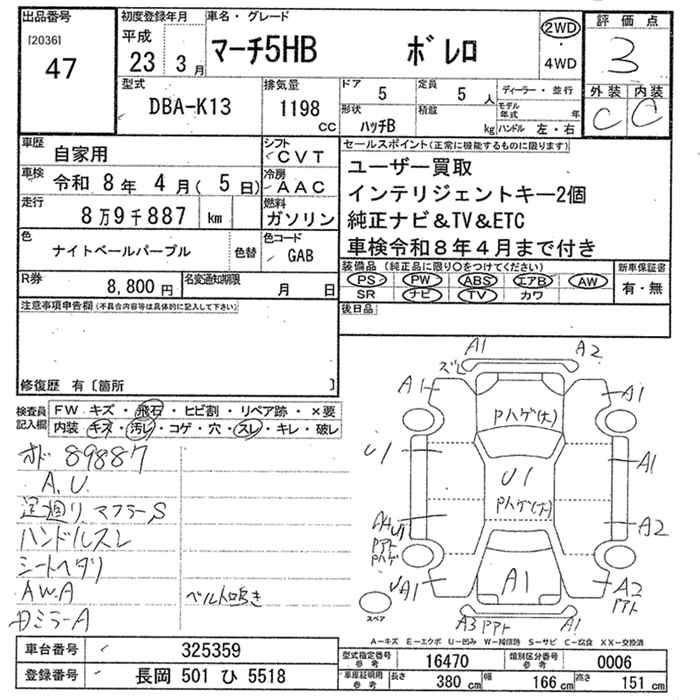 出品番号
[2036]
47
初度登録年月
平成
23年 3月
車名・グレード
マーチ5HB ボレロ
2WD
・
4WD
評価点
3
外装 内装
C C
型式
DBA-K13
排気量
1198 CC
ドア
5
定員
5 人
形状
ハッチB
積載
kg
ディーラー・並行
モデル年式 年
ハンドル 左・右
車歴
自家用
シフト
CVT
車検
令和 8年 4月( 5日)
冷房
AAC
走行
8万9千887 km
燃料
ガソリン
色
ナイトベールパープル
色替
色コード
GAB
R券
8,800円
名変通知期限
月 日
セールスポイント(正常に機能するものに限ります)
ユーザー買取
インテリジェントキー2個
純正ナビ&TV&ETC
車検令和8年4月まで付き
装備品(純正品に限り○をつけてください)
PS PW ABS エアB AW
SR ナビ TV カワ
新車保証書
有・無
後日品
注意事項申告欄(不具合内容等は具体的に記入して下さい)
修復歴 有〔箇所 〕
検査員記入欄
FW キズ・飛石・ヒビ割・リペア跡・×要
内装 キズ・汚レ・コゲ・穴・スレ・キレ・破レ
オド 89887
A.U.
足廻リ、マフラーS
ハンドルスレ
シートヘタリ
AW.A
ベルト鳴き
ミラーA
ズレ
A1 A2
A1 A1
Pハゲ(大)
U1 A1
U1
Pハゲ(大)
U1 A2
Pハゲ
A1
A1 A2
Pアト
スペア
A3 Pアト A1
A-キズ E-エクボ U-凹み W-補修跡 S-サビ C-腐食 XX-交換済
車台番号
325359
登録番号
長岡 501 ひ 5518
型式指定番号 参考
16470
類別区分番号 参考
0006
車庫証明用 参考
長さ 380 cm
幅 166 cm
高さ 151 cm